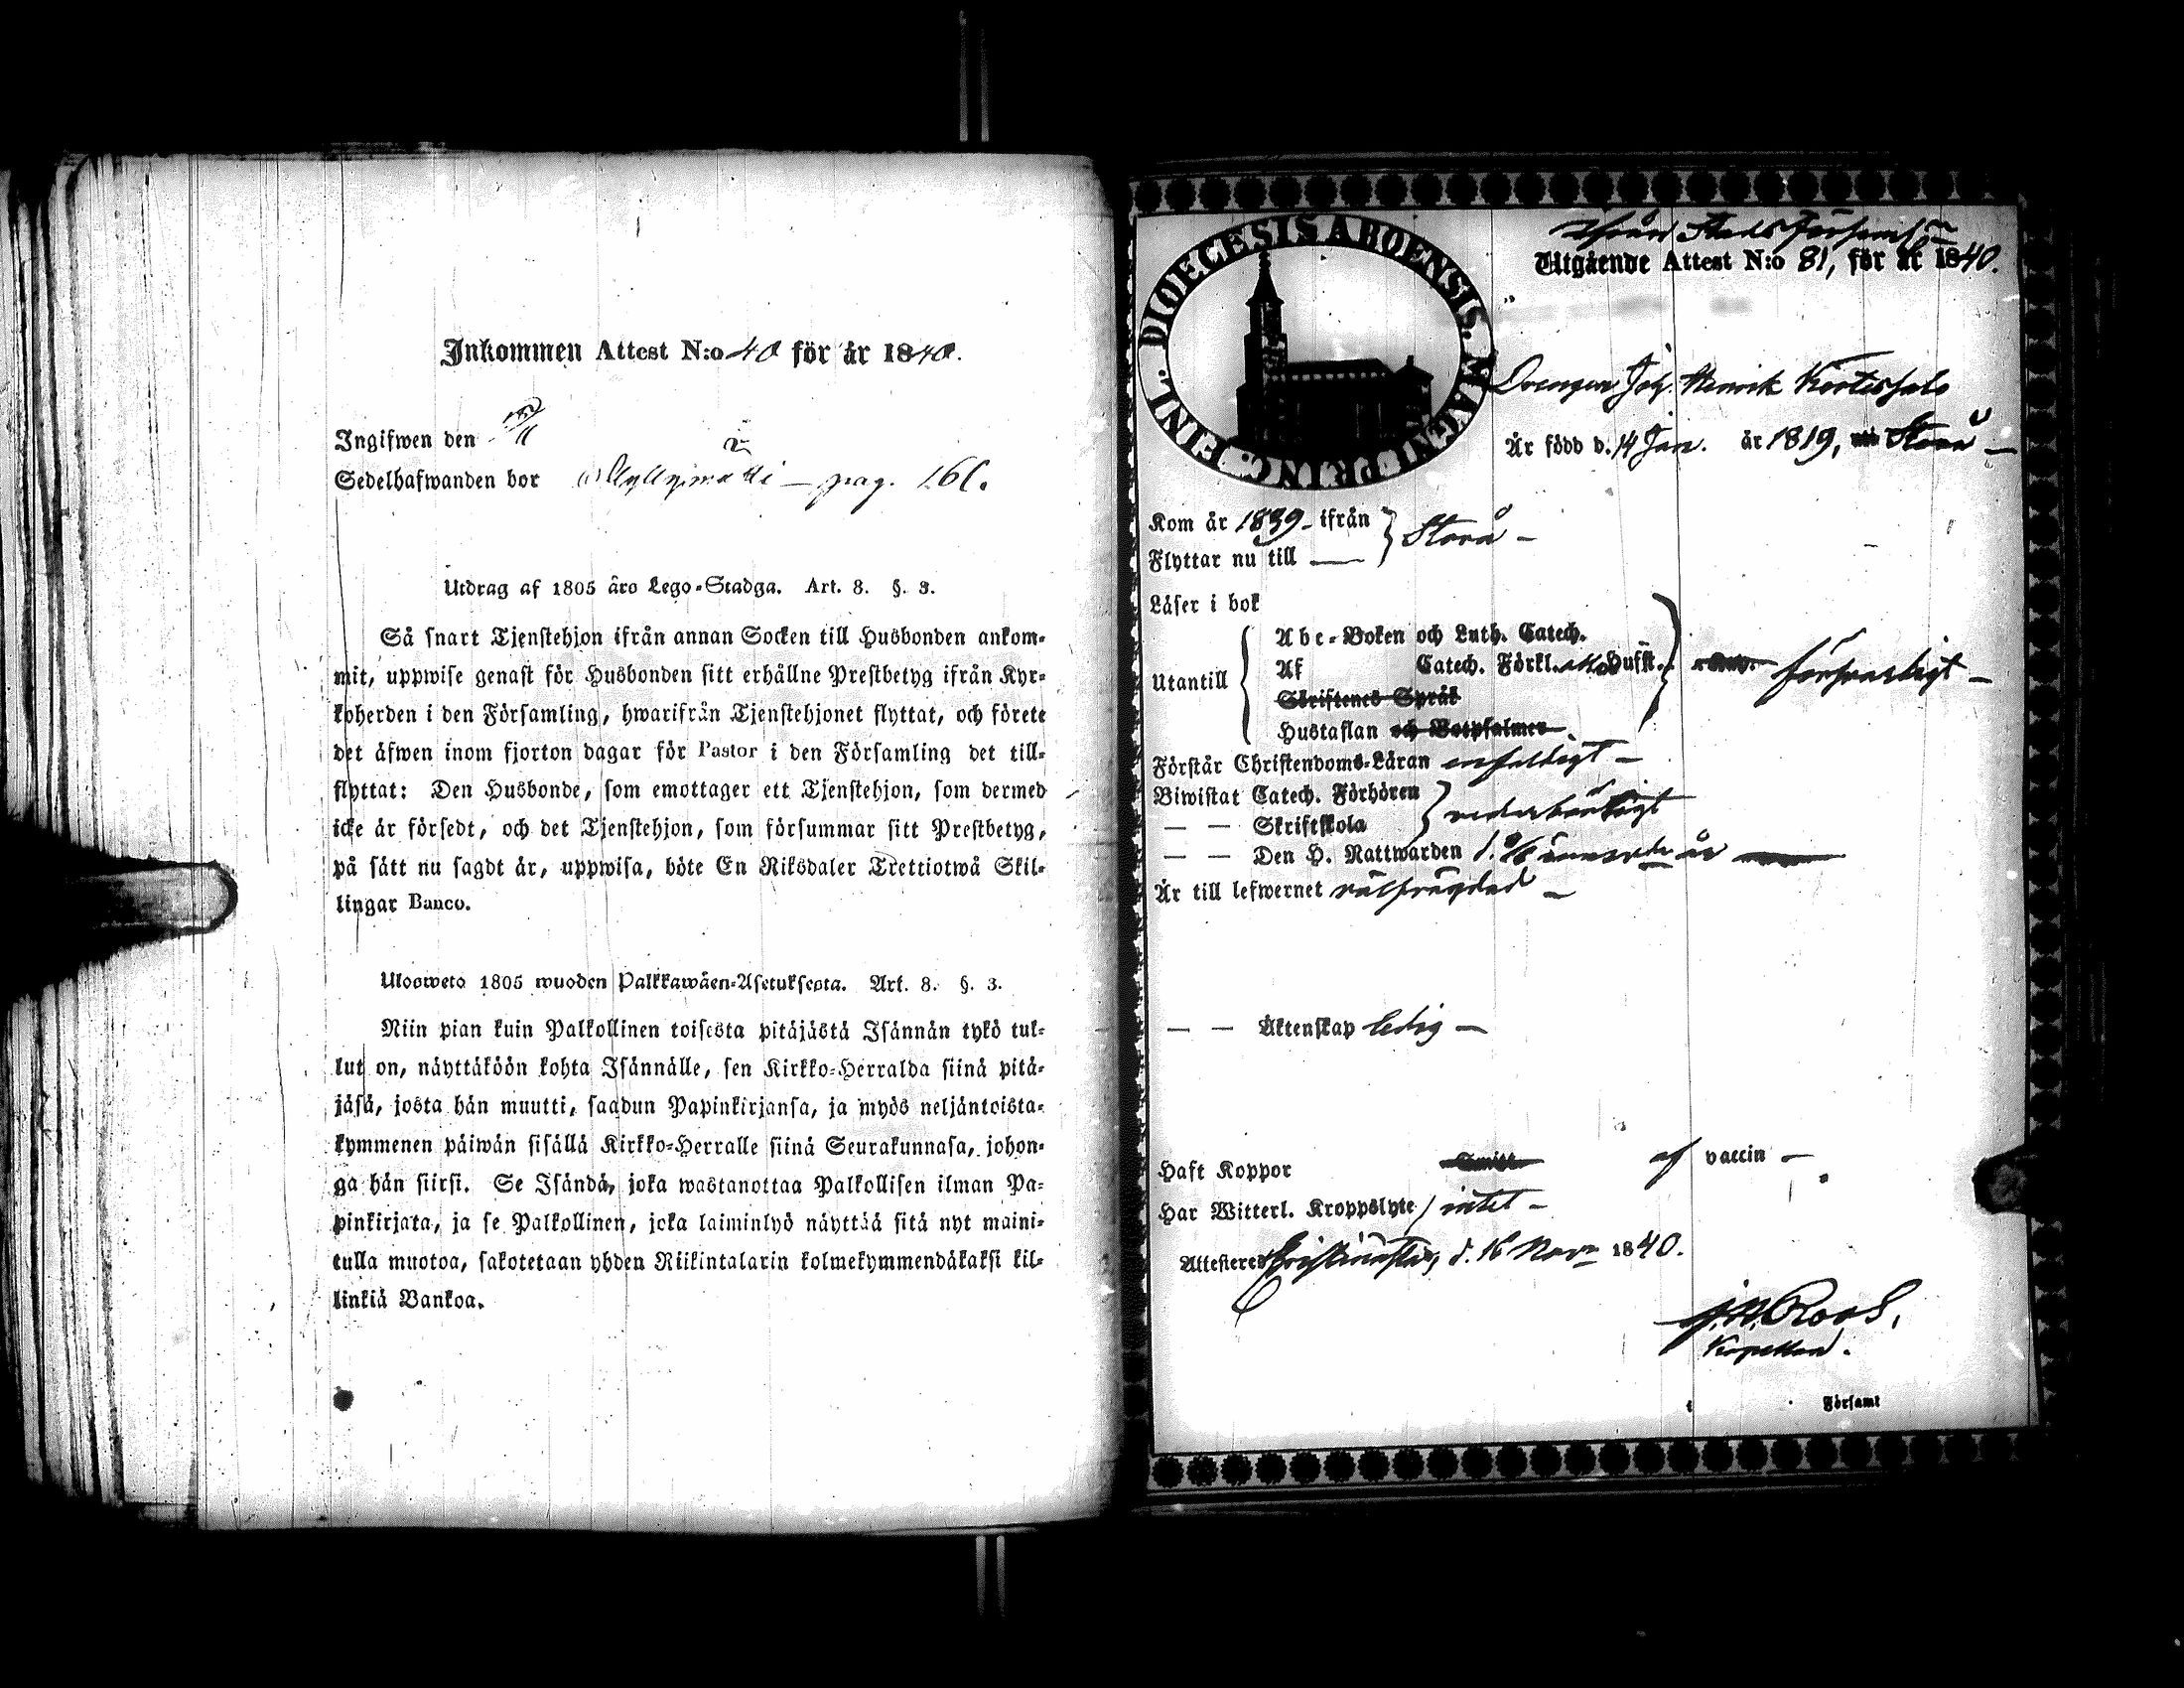 Inkommen Attest N:o 40 för år 1840.
Ingifwen den /11
Sedelhafwanden bor Myllymäki — pag. 161.
Utdrag af 1805 års Lego-Stadga. Art. 8. §. 3.
Så snart Tjenstehjon ifrån annan Socken till Husbonden ankom-
mit, uppwise genast för Husbonden sitt erhållne Prestbetyg ifrån Kyr-
koherden i den Församling, hwarifrån Tjenstehjonet flyttat, och förete
det äfwen inom fjorton dagar för Pastor i den Församling det till-
flyttat: Den Husbonde, som emottager ett Tjenstehjon, som dermed
icke är försedt, och det Tjenstehjon, som försummar sitt Prestbetyg,
på sätt nu sagdt är, uppwisa, böte En Riksdaler Trettiotwå Skil-
lingar Banco.
Uloswetö 1805 wuoden Palkkawäen-Asetuksesta. Art. 8. §. 3.
Niin pian kuin Palkollinen toisesta pitäjästä Isännän tykö tul-
lut on, näyttäköön kohta Isännälle, sen Kirkko-Herralda siinä pitä-
jäsä, josta hän muutti, saadun Papinkirjansa, ja myös neljäntoista-
kymmenen päiwän sisällä Kirkko-Herralle siinä Seurakunnasa, johon-
ga hän siirsi. Se Isändä, joka wastanottaa Palkollisen ilman Pa-
pinkirjata, ja se Palkollinen, joka laiminlyö näyttää sitä nyt maini-
tulla muotoa, sakotetaan yhden Riikintalarin kolmekymmendäkaksi kil-
linkiä Bankoa.
DIOECESIS ABOENSIS. MAGNI PRINC. FINL.
ifrån Stads Församl.
Utgående Attest N:o 81, för år 1840.
Drengen Joh. Henrik
Är född d. 14 Jan. år 1819, Storå —
Kom år 1839 - ifrån
Flyttar nu till —
Storå —
Läser i bok
Utantill
Abc-Boken och Luth. Catech.
Af Catech. Förkl. Huffst.
Skriftenes Språk
Hustaflan och Botpsalmer
försvarligt —
Förstår Christendoms-Läran enfaldigt —
Biwistat Catech. Förhören
— — Skriftskola
vederbörligt
— — Den H. Nattwarden d. innevde år
Är till lefwernet välfrägdad —
— — Äktenskap ledig —
Haft Koppor af vaccin —
Har Witterl. Kroppslyte / intet —
Attesteres Christinestad, d. 16 Novr 1840.
J. W. Roos,
Kapellan.
Församl